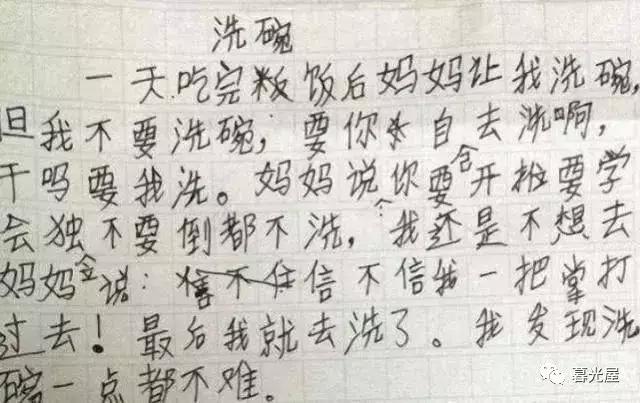 洗碗
一天吃完粄饭后妈妈让我洗碗,
但我不要洗碗,要你自去洗啊,
干吗要我洗。妈妈说你要含开拉要学
会独不要倒都不洗,我还是不想去
妈妈会说:信不信我一把掌打
过去!最后我就去洗了。我发现洗
碗一点都不难。
暮光屋